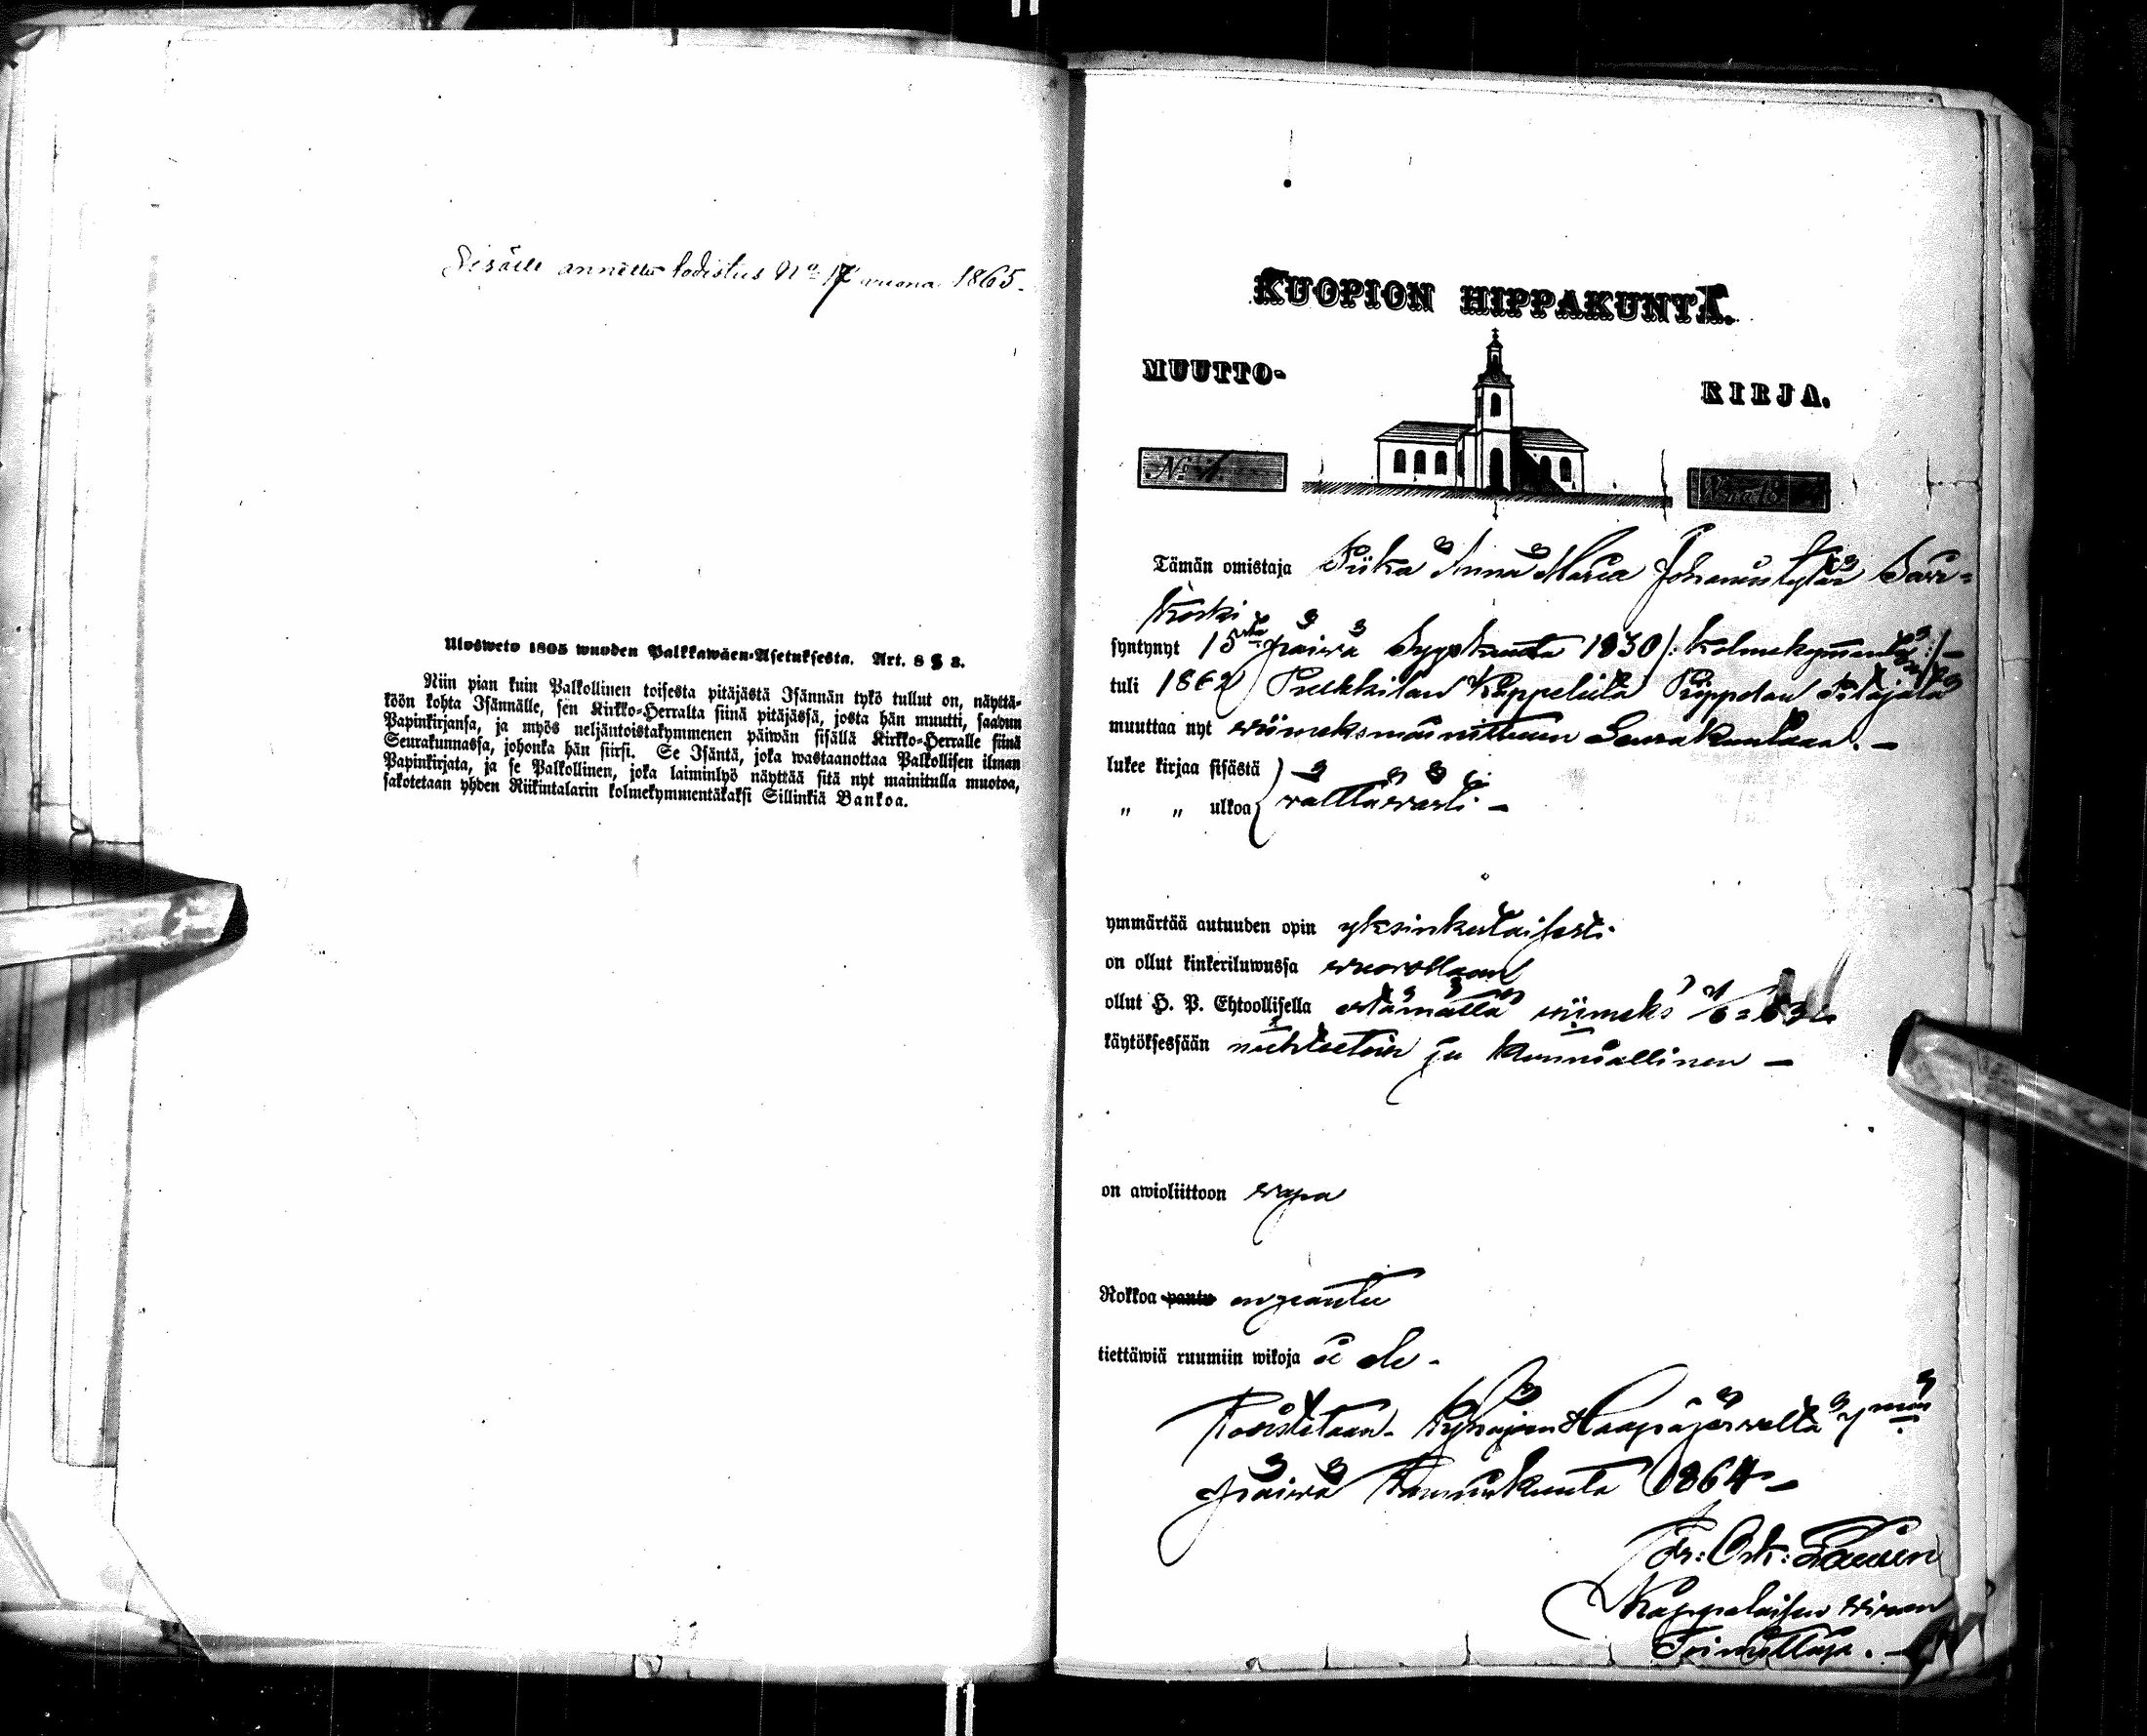 Sisälle annettu todistus No 17 vuona 1865.
Ulosweto 1805 wuoden Palkkawäen-Asetuksesta. Art. 8 § 3.
Niin pian kuin Palkollinen toisesta pitäjästä Isännän tykö tullut on, näyttä-
köön kohta Isännälle, sen Kirkko-Herralta siinä pitäjässä, josta hän muutti, saadun
Papinkirjansa, ja myös neljäntoistakymmenen päiwän sisällä Kirkko-Herralle siinä
Seurakunnassa, johonka hän siirsi. Se Isäntä, joka wastaanottaa Palkollisen ilman
Papinkirjata, ja se Palkollinen, joka laiminlyö näyttää sitä nyt mainitulla muotoa,
sakotetaan yhden Riikintalarin kolmekymmentäkaksi Sillinkiä Bankoa.
KUOPION HIPPAKUNTA.
MUUTTO-
KIRJA.
No 1.
Wuna 18
Tämän omistaja Piika Anna Maria Johanintytär Saar=
koski
syntynyt 15 päivä Syyskuuta 1830 /: kolmekymmentä :/ –
tuli 1862 Pulkkilan Kappelista Piippolan Pitäjätä
muuttaa nyt viimeksmainittuun Seurakuntaan. –
lukee kirjaa sisästä
" " ulkoa } välttävästi –
ymmärtää autuuden opin yksinkertaisesti
on ollut kinkeriluwussa vuorollaan
ollut H. P. Ehtoollisella viimeks
käytöksessään nuhteetoin ja kunniallinen –
on awioliittoon vapa
Rokkoa pantu on pantu
tiettäwiä ruumiin wikoja ei ole –
Todistetaan. Haapajärveltä
päivä Tammikuuta 1864 –
Fr: Osk:
Kappalaisen viran
Toimittaja. –